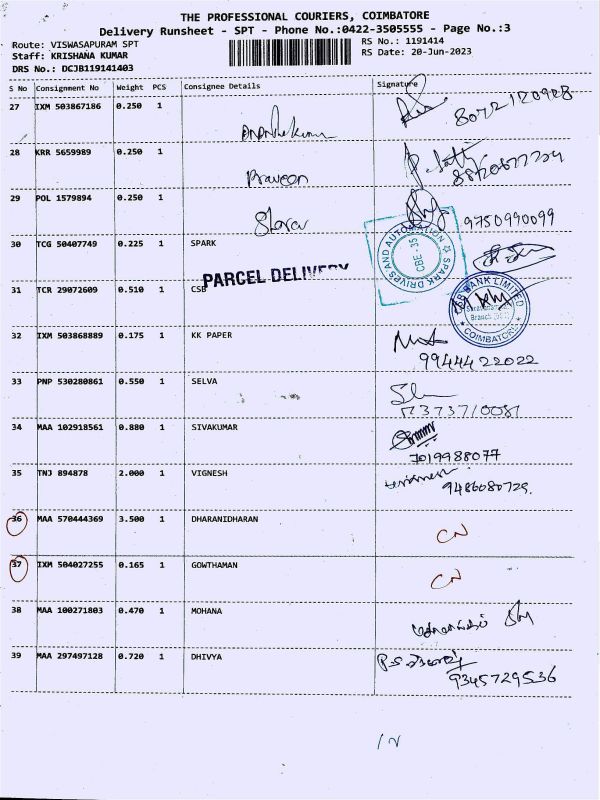 THE PROFESSIONAL COURIERS, COIMBATORE
Delivery Runsheet - SPT - Phone No.:0422-3505555 - Page No.:3
Route: VISWASAPURAM SPT
RS No.: 1191414
Staff: KRISHANA KUMAR
RS Date: 20-Jun-2023
DRS No.: DCJB119141403
S No Consignment No Weight PCS Consignee Details Signature
27 IXM 503867186 0.250 1
28 KRR 5659989 0.250 1 Praveen
29 POL 1579894 0.250 1 9750990099
30 TCG 50407749 0.225 1 SPARK
SPARK DRIVES AND AUTOMATION
CBE - 35
PARCEL DELIVERY
31 TCR 29072609 0.510 1 CSB
CSB BANK LIMITED
COIMBATORE
32 IXM 503868889 0.175 1 KK PAPER
9944422022
33 PNP 530280861 0.550 1 SELVA
34 MAA 102918561 0.880 1 SIVAKUMAR
7019988077
35 TNJ 894878 2.000 1 VIGNESH
9486080729.
36 MAA 570444369 3.500 1 DHARANIDHARAN CN
37 IXM 504027255 0.165 1 GOWTHAMAN CN
38 MAA 100271803 0.470 1 MOHANA
39 MAA 297497128 0.720 1 DHIVYA
9345729536